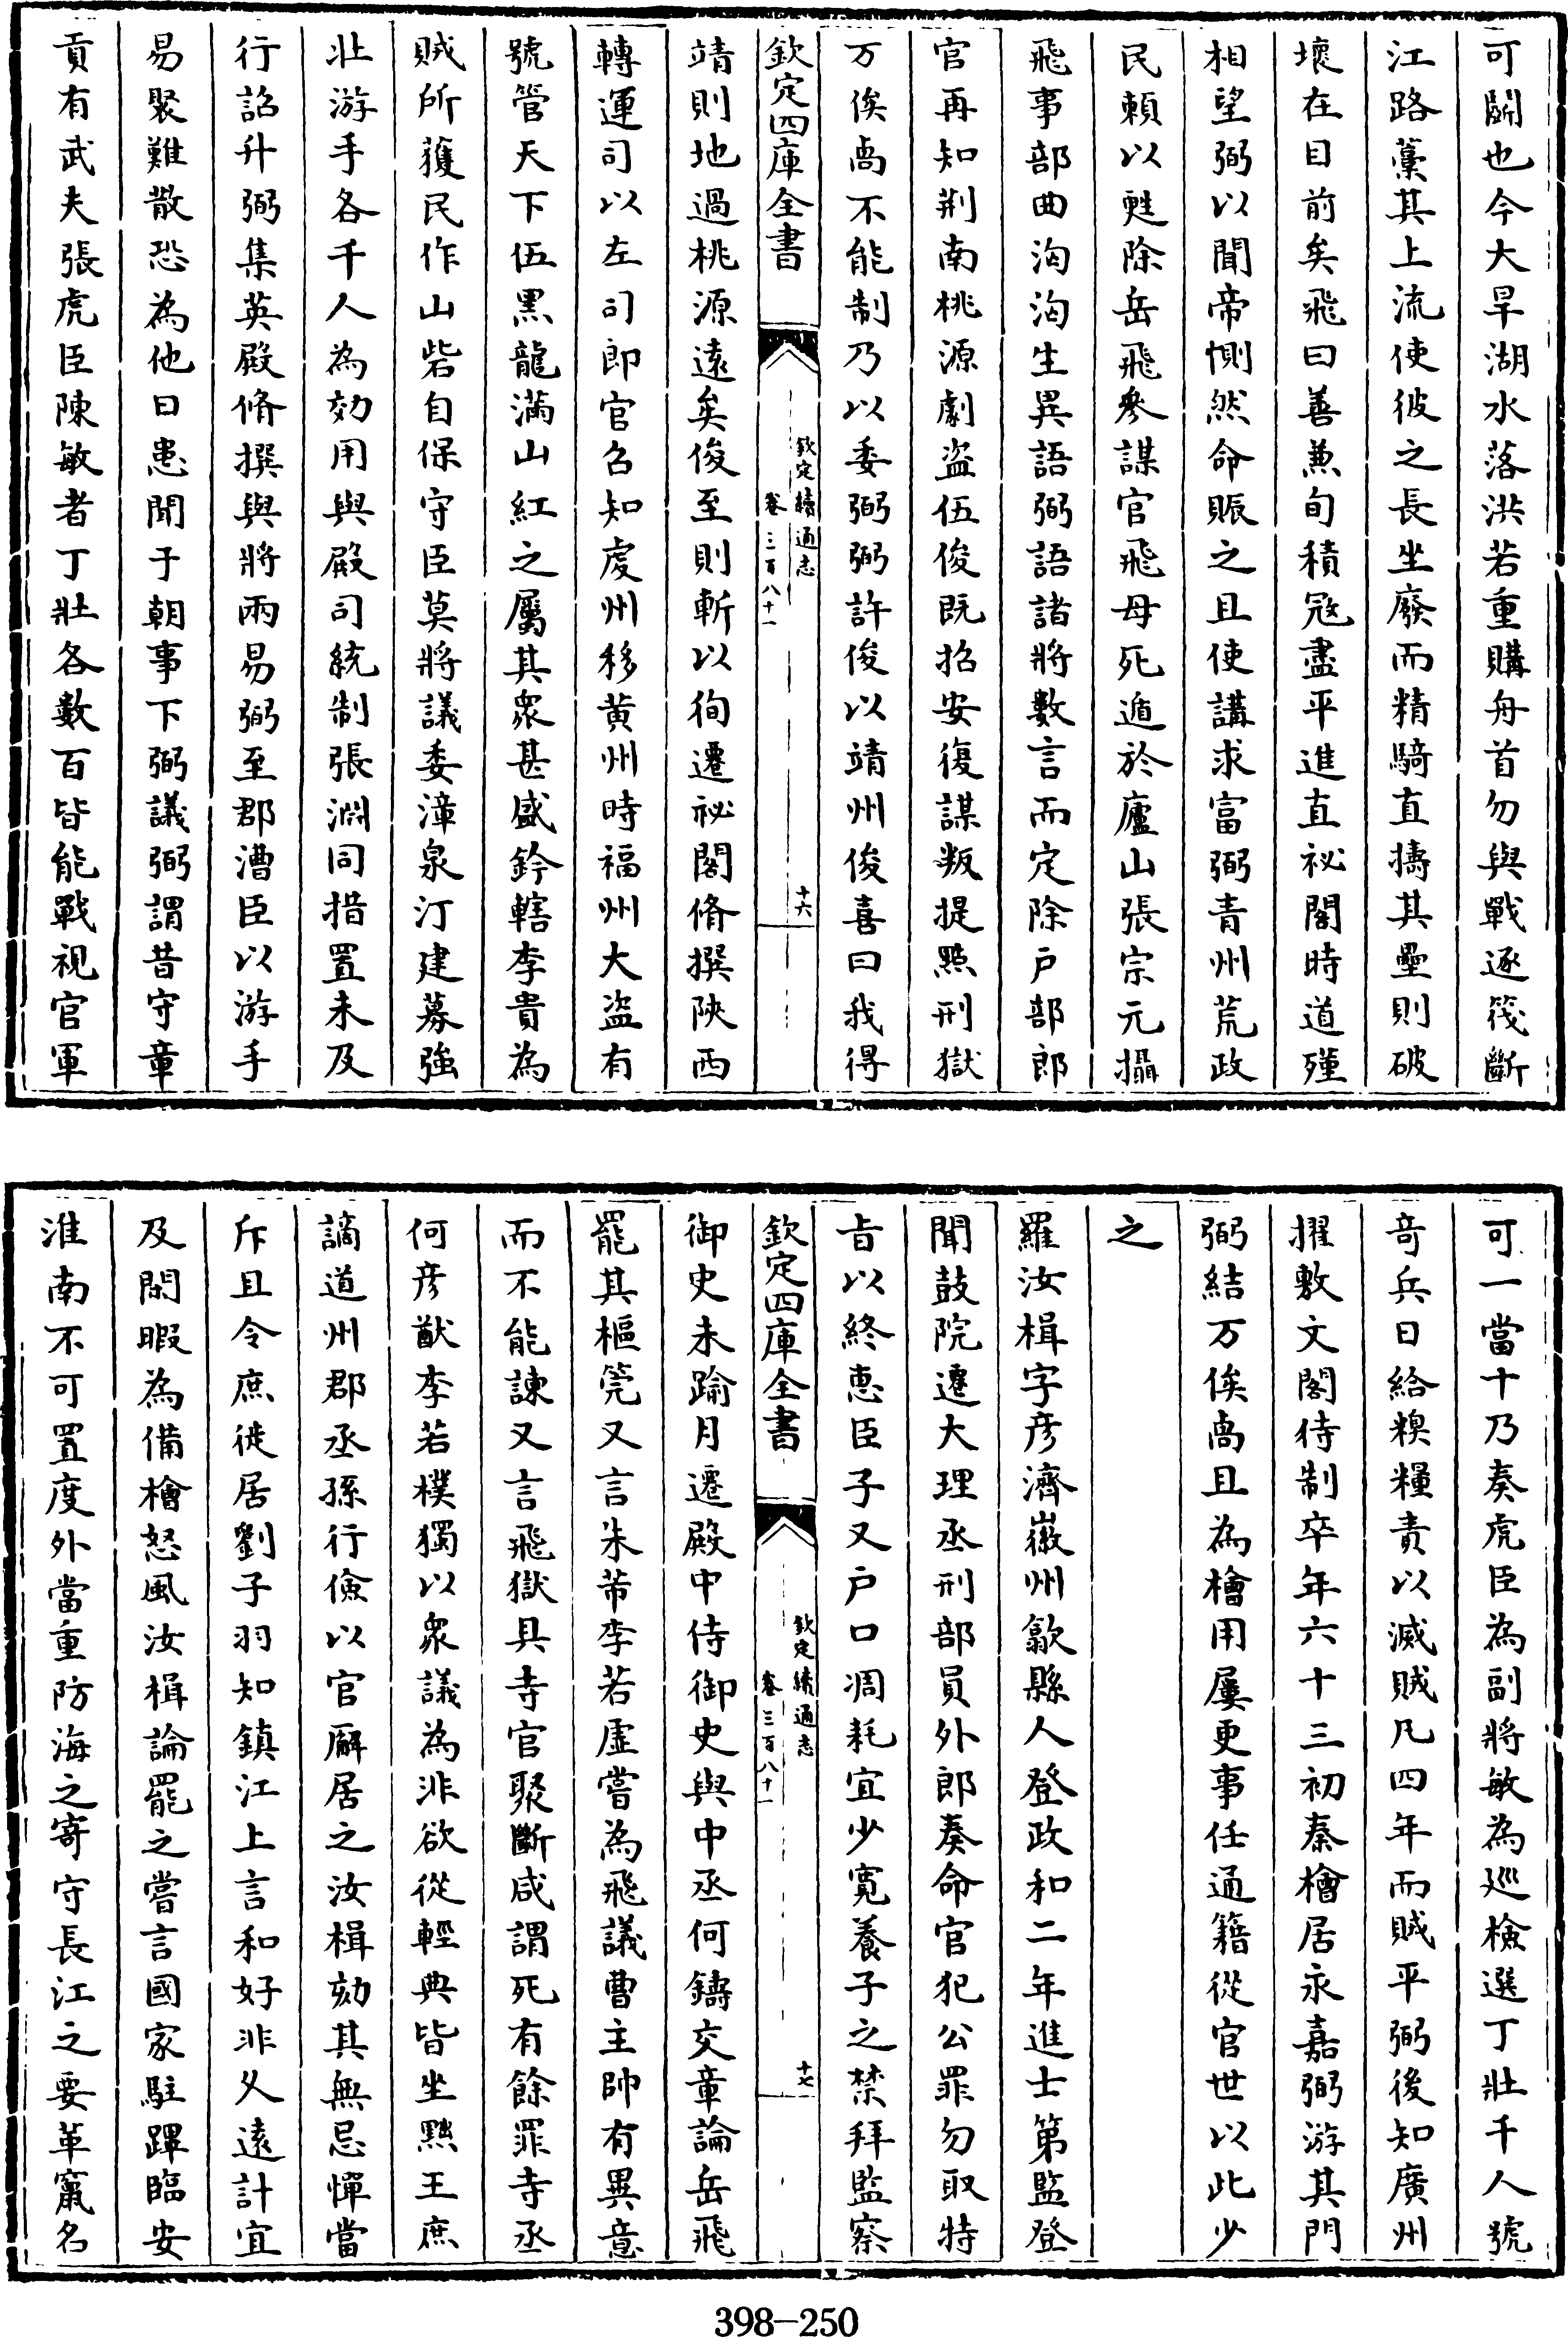 可闘也今大旱湖水落洪若重購舟首勿與戰逐筏斷
江路藁其上流使彼之長坐廢而精騎直擣其壘則破
壞在目前矣飛曰善兼旬積冦盡平進直祕閣時道殣
相望弼以聞帝惻然命賑之且使講求富弼青州荒政
民賴以甦除岳飛參謀官飛母死遁於廬山張宗元攝
飛事部曲洶洶生異語弼語諸將數言而定除户部郎
官再知荆南桃源劇盗伍俊既招安復謀叛提㸃刑獄
万俟卨不能制乃以委弼弼許俊以靖州俊喜曰我得
欽定四庫全書
欽定續通志
卷三百八十一
十六
靖則地過桃源遠矣俊至則斬以徇遷祕閣脩撰陜西
轉運司以左司郎官召知䖍州移黄州時福州大盗有
號管天下伍黑龍滿山紅之屬其衆甚盛鈐轄李貴為
賊所獲民作山砦自保守臣莫將議委漳泉汀建募强
壯游手各千人為効用與殿司統制張淵同措置未及
行詔升弼集英殿脩撰與將兩易弼至郡漕臣以游手
易聚難散恐為他日患聞于朝事下弼議弼謂昔守章
貢有武夫張虎臣陳敏者丁壯各數百皆能戰視官軍
可一當十乃奏虎臣為副將敏為廵檢選丁壯千人號
竒兵日給糗糧責以滅賊凡四年而賊平弼後知廣州
擢敷文閣待制卒年六十三初秦檜居永嘉弼游其門
弼結万俟卨且為檜用屢更事任通籍從官世以此少
之
羅汝楫字彦濟徽州歙縣人登政和二年進士第監登
聞鼓院遷大理丞刑部員外郎奏命官犯公罪勿取特
㫖以終惠臣子又户口凋耗宜少寛養子之禁拜監察
欽定四庫全書
欽定續通志
卷三百八十一
十七
御史未踰月遷殿中侍御史與中丞何鑄交章論岳飛
罷其樞筦又言朱芾李若虚嘗為飛議曹主帥有異意
而不能諫又言飛獄具寺官聚斷咸謂死有餘罪寺丞
何彦猷李若樸獨以衆議為非欲從輕典皆坐黜王庶
謫道州郡丞孫行儉以官廨居之汝楫劾其無忌憚當
斥且令庶徙居劉子羽知鎮江上言和好非久遠計宜
及閒暇為備檜怒風汝楫論罷之嘗言國家駐蹕臨安
淮南不可置度外當重防海之寄守長江之要革竄名
398-250